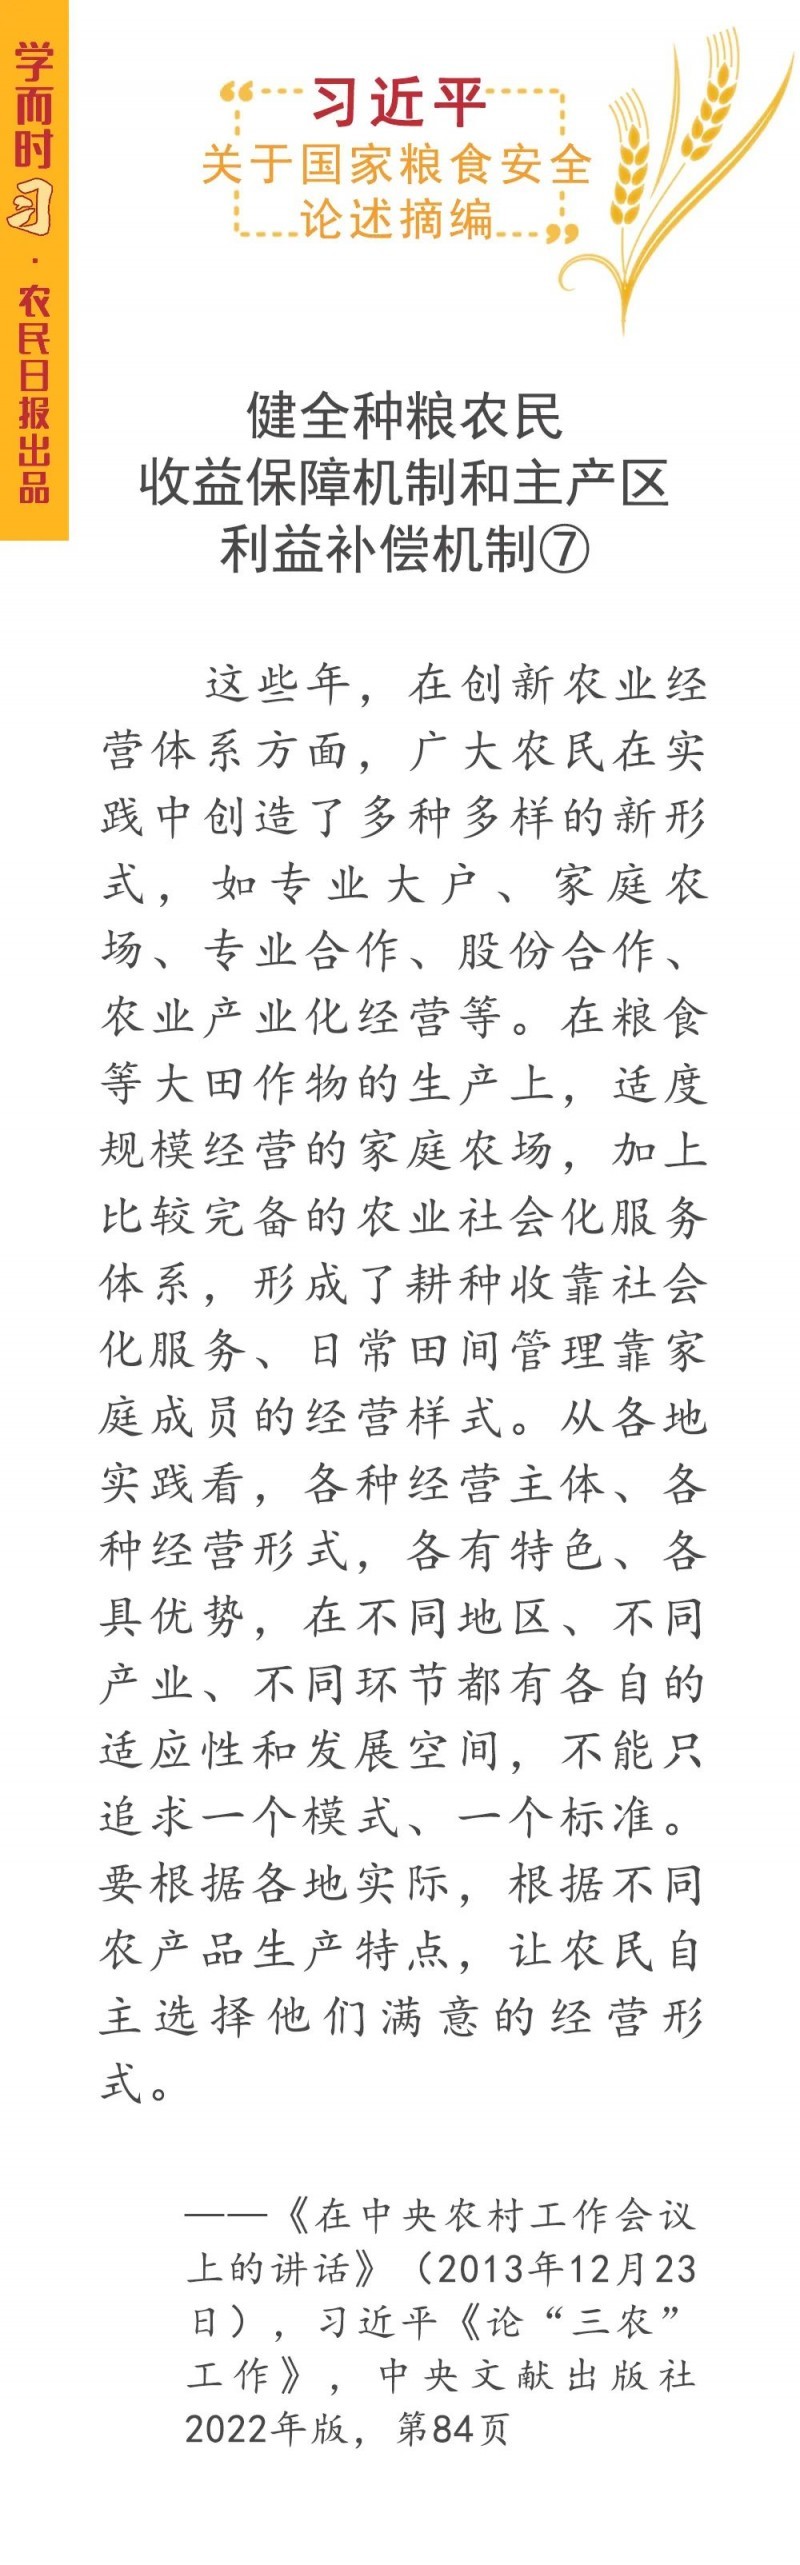 学而时习·农民日报出品
“习近平
关于国家粮食安全
论述摘编”
健全种粮农民
收益保障机制和主产区
利益补偿机制⑦
这些年，在创新农业经
营体系方面，广大农民在实
践中创造了多种多样的新形
式，如专业大户、家庭农
场、专业合作、股份合作、
农业产业化经营等。在粮食
等大田作物的生产上，适度
规模经营的家庭农场，加上
比较完备的农业社会化服务
体系，形成了耕种收靠社会
化服务、日常田间管理靠家
庭成员的经营样式。从各地
实践看，各种经营主体、各
种经营形式，各有特色、各
具优势，在不同地区、不同
产业、不同环节都有各自的
适应性和发展空间，不能只
追求一个模式、一个标准。
要根据各地实际，根据不同
农产品生产特点，让农民自
主选择他们满意的经营形
式。
——《在中央农村工作会议
上的讲话》（2013年12月23
日），习近平《论“三农”
工作》，中央文献出版社
2022年版，第84页